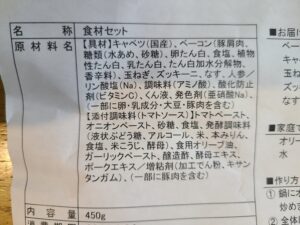 名称 食材セット
原材料名 【具材】キャベツ(国産)、ベーコン(豚肩肉、
糖類(水あめ、砂糖)、卵たん白、食塩、植物
性たん白、乳たん白、たん白加水分解物、
香辛料)、玉ねぎ、ズッキーニ、なす、人参/
リン酸塩(Na)、調味料(アミノ酸)、酸化防止
剤(ビタミンC)、くん液、発色剤(亜硝酸Na)、
(一部に卵・乳成分・大豆・豚肉を含む)
【添付調味料(トマトソース)】トマトペースト、
オニオンペースト、砂糖、食塩、発酵調味料
(液状ぶどう糖、アルコール、米、本みりん、
食塩、米こうじ、酵母)、食用オリーブ油、
ガーリックペースト、醸造酢、酵母エキス、
ポークエキス/増粘剤(加工でん粉、キサ
ンタンガム)、(一部に豚肉を含む)
内容量 450g
■お届け
■家庭
オリー
水
■作り方
①鍋にオ
炒め
②全体